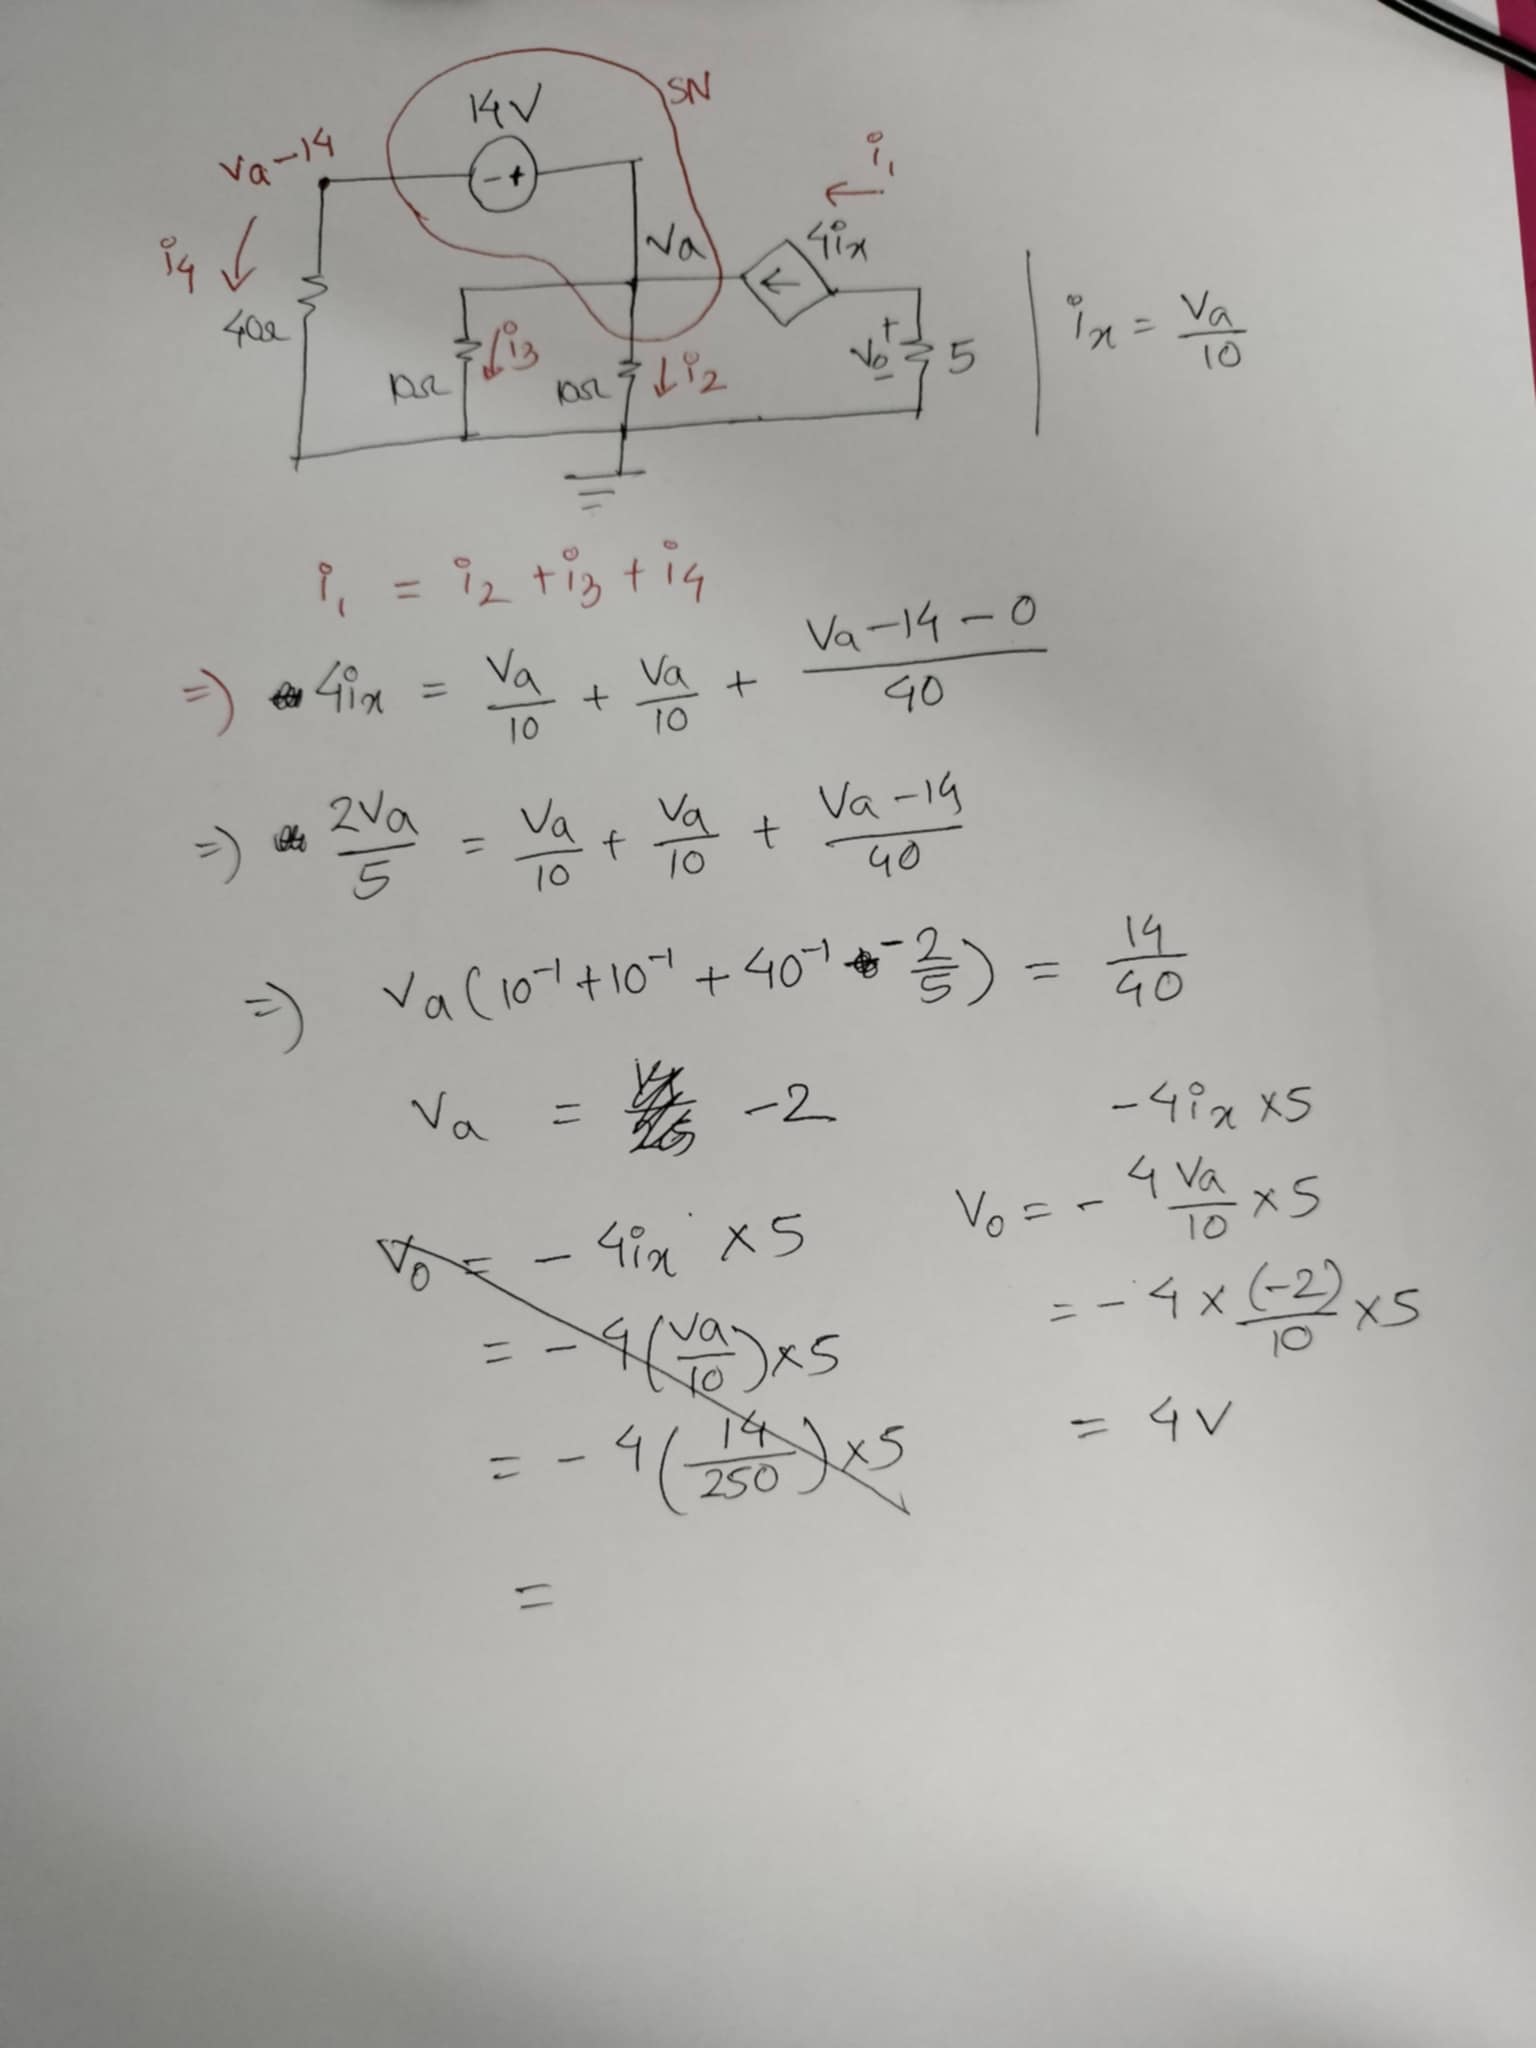 14V
SN
Va-14
i1
i4
- +
Va
4ix
40Ω
i3
i2
10Ω
10Ω
+
Vo
-
5
ix = Va/10
i1 = i2 + i3 + i4
=) 4ix = Va/10 + Va/10 + Va-14-0/40
=) 2Va/5 = Va/10 + Va/10 + Va-14/40
=) Va(10⁻¹+10⁻¹+40⁻¹ - 2/5) = 14/40
Va = -2
Vo = - 4ix x5
= -4(Va/10)x5
= -4(14/250)x5
=
-4ix x5
Vo = - 4 Va/10 x5
= -4 x (-2)/10 x5
= 4V